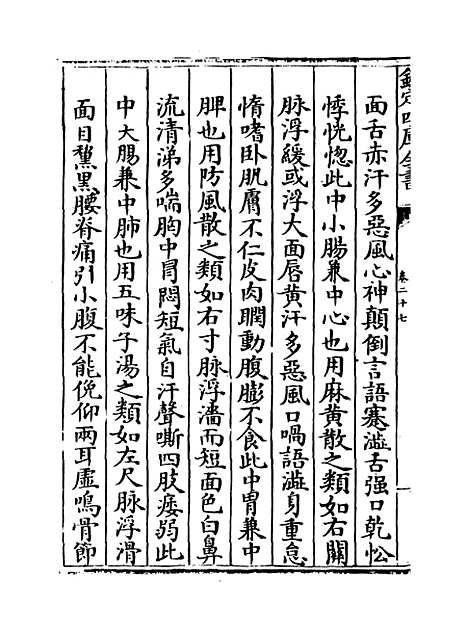 欽定四庫全書
卷二十七
面舌赤汗多惡風心神顛倒言語蹇澁舌强口乾忪
悸恍惚此中小腸兼中心也用麻黄散之類如右關
脉浮緩或浮大面唇黄汗多惡風口喎語澁身重怠
惰嗜卧肌膚不仁皮肉瞤動腹膨不食此中胃兼中
脾也用防風散之類如右寸脉浮濇而短面色白鼻
流清涕多喘胸中冒悶短氣自汗聲嘶四肢痿弱此
中大腸兼中肺也用五味子湯之類如左尺脉浮滑
面目黧黑腰脊痛引小腹不能俛仰兩耳虚鳴骨節